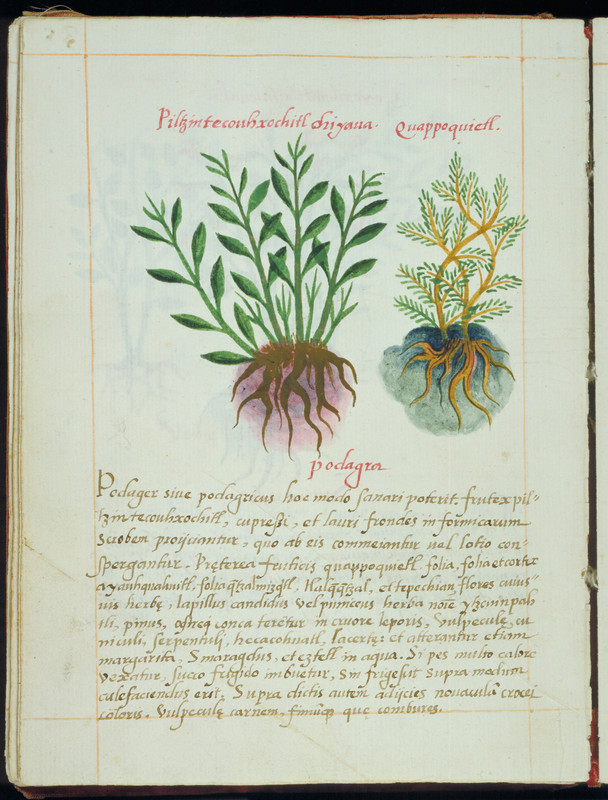 Piltzintecouhxochitl chiyaua. Quappoquietl.
podagra
Podager siue podagricus hoc modo sanari poterit, frutex pil-
tzintecouhxochitl, cupressi, et lauri frondes in formicarum
scrobem proijciantur, quo ab eis commeiantur uel lotio con-
spergantur. Pręterea fruticis quappoquietl, folia, folia et cortex
ayauhquahuitl, folia tepechian, flores cuius-
uis herbę, lapillus candidus vel puniceus herba
tli, pinus, conca teretur in cruore leporis, Vulpeculę, cu
niculi, serpentuli, hecacohuatl, lacertę: et atterantur etiam
margarita, Smaragdus, et eztetl in aqua. Si pes multo calore
vexatur, succo frigido imbuetur, Sin frigescit supra modum
calefaciendus erit. Supra dictis autem adijcies crocei
coloris. Vulpeculę carnem, quę combures.